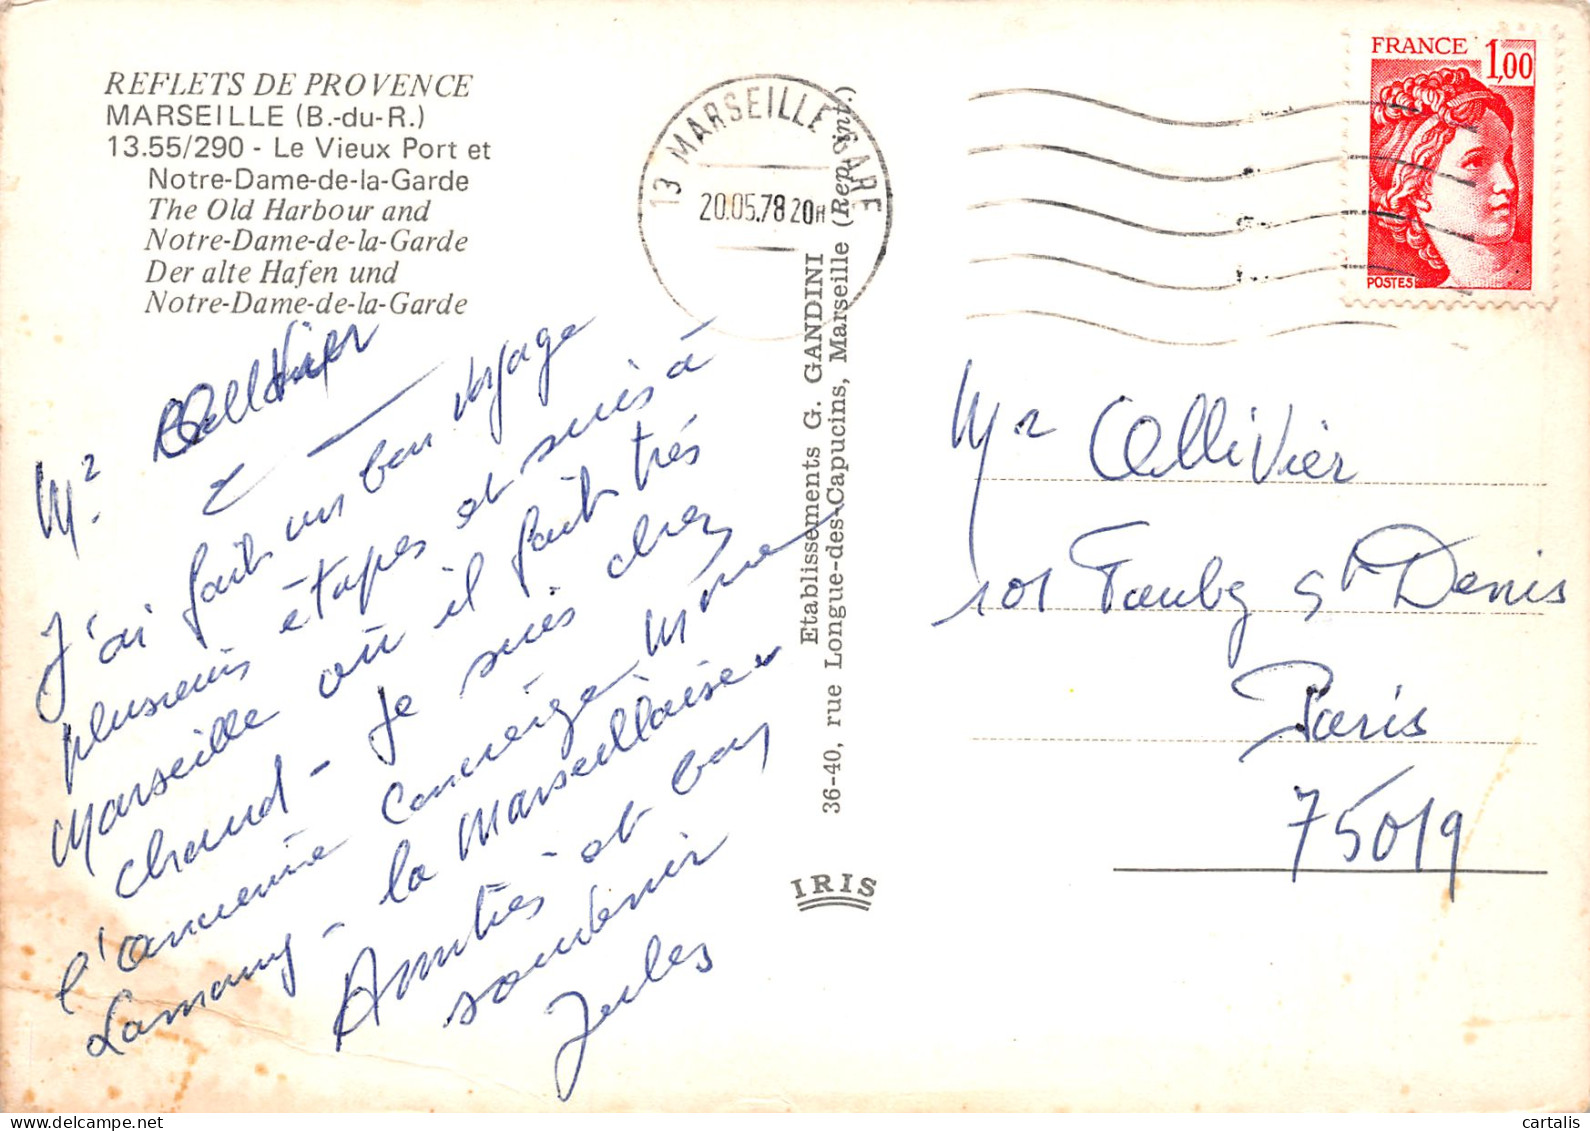 REFLETS DE PROVENCE
MARSEILLE (B.-du-R.)
13.55/290 - Le Vieux Port et
Notre-Dame-de-la-Garde
The Old Harbour and
Notre-Dame-de-la-Garde
Der alte Hafen und
Notre-Dame-de-la-Garde
Mr. Ollivier
J'ai fait un bon voyage
plusieurs étapes et suis à
Marseille où il fait très
chaud - Je suis chez
l'ancienne concierge Mme
Lamany - la Marseillaise
Amitiés et bon
souvenir
Jules
Etablissements G. GANDINI
36-40, rue Longue-des-Capucins, Marseille (Rep. int.)
IRIS
13 MARSEILLE GARE
20.05.78 20H
FRANCE 1,00
POSTES
Mr Ollivier
101 Faubg St Denis
Paris
75019
cartalis